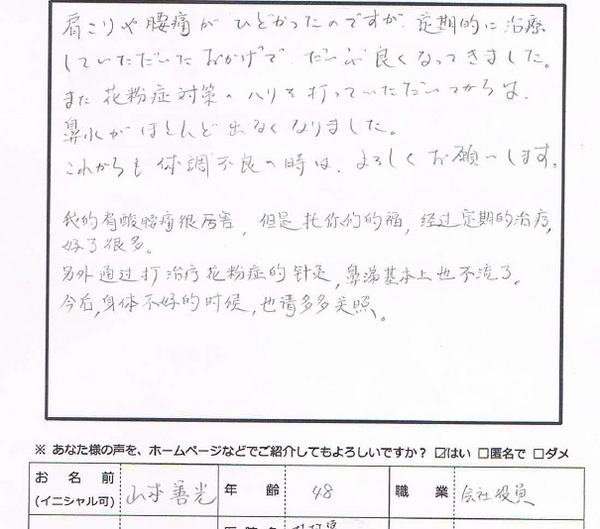 肩こりや腰痛がひどかったのですが、定期的に治療
していただいたおかげで、だいぶ良くなってきました。
また花粉症対策のハリを打っていただいてからは、
鼻水がほとんど出なくなりました。
これからも体調不良の時は、よろしくお願いします。
我的肩酸腰痛很厉害，但是托你们的福，经过定期的治疗，
好了很多。
另外通过打治疗花粉症的针灸，鼻涕基本上也不流了。
今后，身体不好的时候，也请多多关照。
※ あなた様の声を、ホームページなどでご紹介してもよろしいですか？ ☑はい □匿名で □ダメ
お名前 山本善光 年齢 48 職業 会社役員
(イニシャル可)